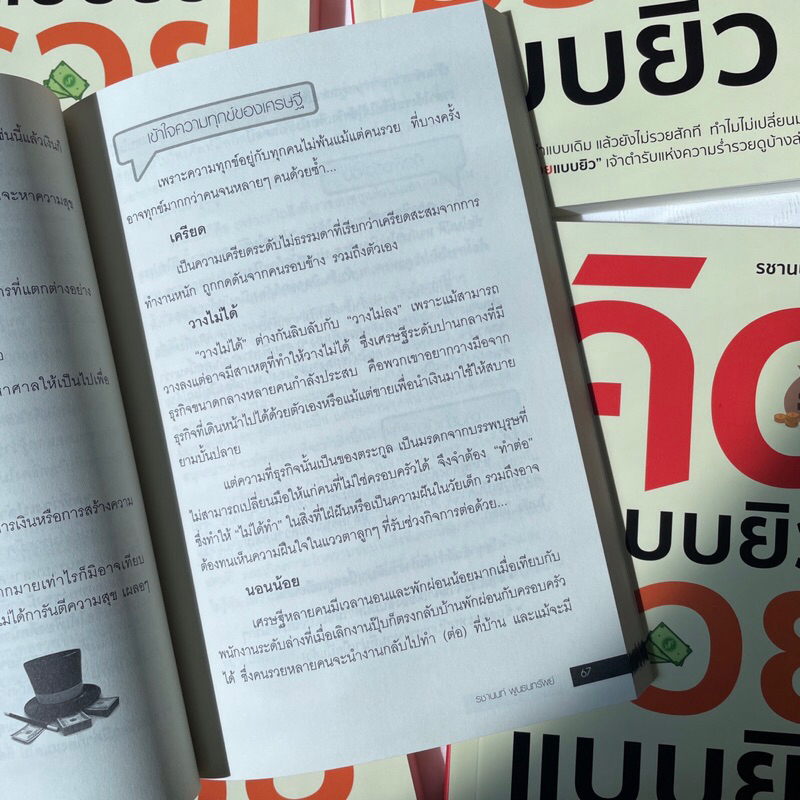 ช่นนี้แล้วเงินก็
จะหาความสุข
ารที่แตกต่างอย่าง
าศาลให้เป็นไปเพื่อ
ารเงินหรือการสร้างความ
ากมายเท่าไรก็มิอาจเทียบ
ไม่ได้การันตีความสุข เผลอๆ
เข้าใจความทุกข์ของเศรษฐี
เพราะความทุกข์อยู่กับทุกคนไม่พ้นแม้แต่คนรวย ที่บางครั้ง
อาจทุกข์มากกว่าคนจนหลายๆ คนด้วยซ้ำ...
เครียด
เป็นความเครียดระดับไม่ธรรมดาที่เรียกว่าเครียดสะสมจากการ
ทำงานหนัก ถูกกดดันจากคนรอบข้าง รวมถึงตัวเอง
วางไม่ได้
“วางไม่ได้” ต่างกันลิบลับกับ “วางไม่ลง” เพราะแม้สามารถ
วางลงแต่อาจมีสาเหตุที่ทำให้วางไม่ได้ ซึ่งเศรษฐีระดับปานกลางที่มี
ธุรกิจขนาดกลางหลายคนกำลังประสบ คือพวกเขาอยากวางมือจาก
ธุรกิจที่เดินหน้าไปได้ด้วยตัวเองหรือแม้แต่ขายเพื่อนำเงินมาใช้ให้สบาย
ยามบั้นปลาย
แต่ความที่ธุรกิจนั้นเป็นของตระกูล เป็นมรดกจากบรรพบุรุษที่
ไม่สามารถเปลี่ยนมือให้แก่คนที่ไม่ใช่ครอบครัวได้ จึงจำต้อง “ทำต่อ”
ซึ่งทำให้ “ไม่ได้ทำ” ในสิ่งที่ใฝ่ฝันหรือเป็นความฝันในวัยเด็ก รวมถึงอาจ
ต้องทนเห็นความฝืนใจในแววตาลูกๆ ที่รับช่วงกิจการต่อด้วย...
นอนน้อย
เศรษฐีหลายคนมีเวลานอนและพักผ่อนน้อยมากเมื่อเทียบกับ
พนักงานระดับล่างที่เมื่อเลิกงานปุ๊บก็ตรงกลับบ้านพักผ่อนกับครอบครัว
ได้ ซึ่งคนรวยหลายคนจะนำงานกลับไปทำ (ต่อ) ที่บ้าน และแม้จะมี
รชานนท์ พูนธนทรัพย์
67
รวย
แบบยิว
แบบเดิม แล้วยังไม่รวยสักที ทำไมไม่เปลี่ยนม
ยแบบยิว” เจ้าตำรับแห่งความร่ำรวยดูบ้างล่
รชานน
คิด
แบบยิว
รวย
แบบยิว